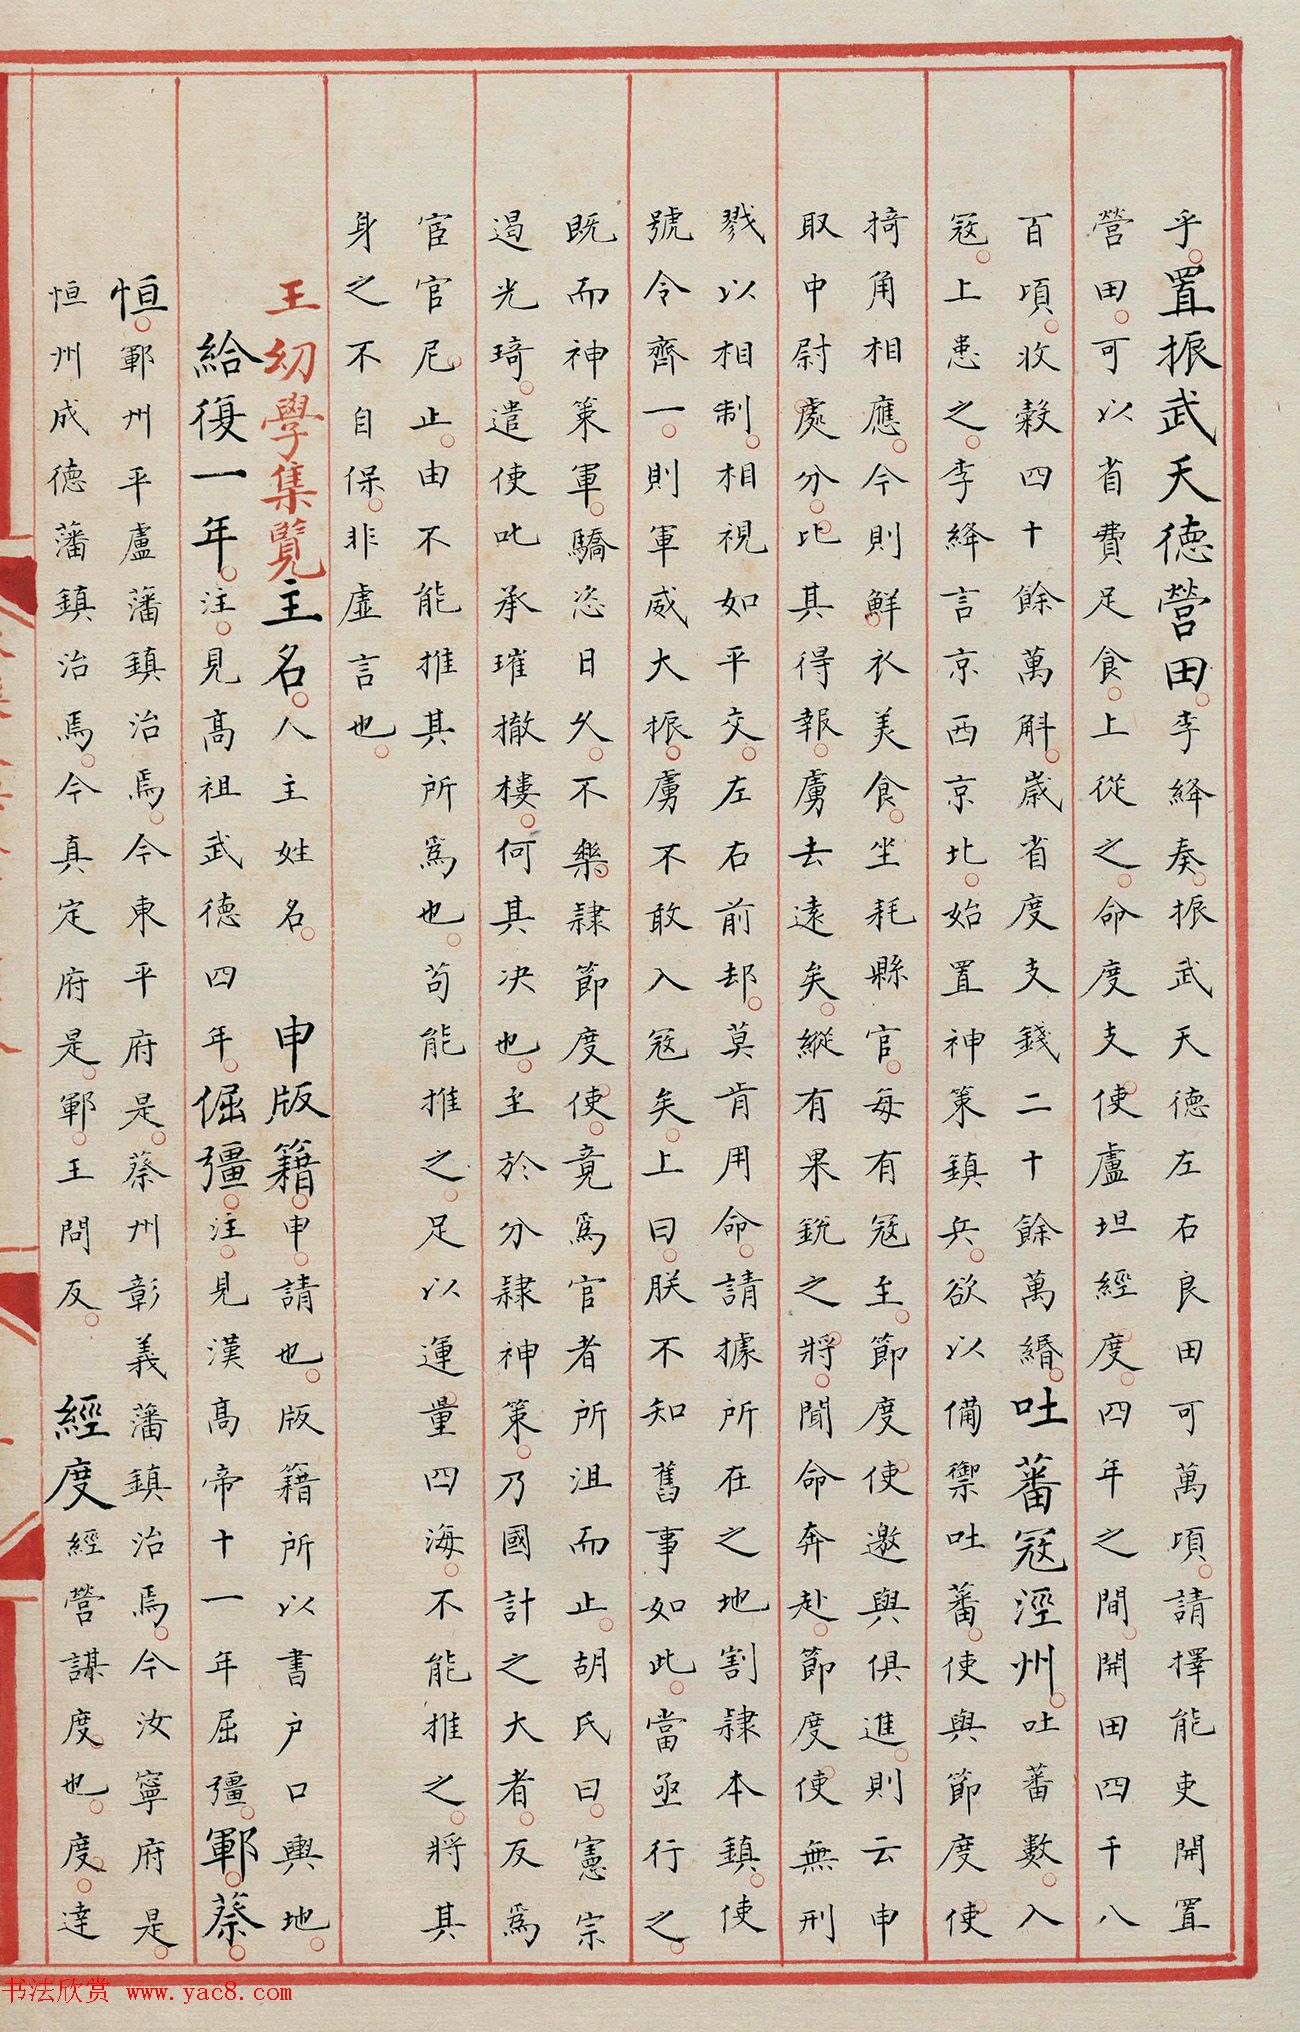 乎。置振武天德營田。李絳奏。振武天德左右良田可萬頃。請擇能吏開置
營田。可以省費足食。上從之。命度支使盧坦經度。四年之間。開田四千八
百頃。收穀四十餘萬斛。歲省度支錢二十餘萬緡。吐蕃寇涇州。吐蕃數入
寇。上患之。李絳言京西京北。始置神策鎮兵。欲以備禦吐蕃。使與節度使
掎角相應。今則鮮衣美食。坐耗縣官。每有寇至。節度使邀與俱進。則云申
取中尉處分。比其得報。虜去遠矣。縱有果銳之將。聞命奔赴。節度使無刑
戮以相制。相視如平交。左右前却。莫肯用命。請據所在之地割隸本鎮。使
號令齊一。則軍威大振。虜不敢入寇矣。上曰。朕不知舊事如此。當亟行之。
既而神策軍。驕恣日久。不樂隸節度使。竟爲宦者所沮而止。胡氏曰。憲宗
遏光琦。遣使叱承璀撤樓。何其决也。至於分隸神策。乃國計之大者。反爲
宦官尼止。由不能推其所爲也。苟能推之。足以運量四海。不能推之。將其
身之不自保。非虛言也。
王幼學集覽主名。人主姓名。 申版籍。申。請也。版籍所以書户口輿地。
給復一年。注。見高祖武德四年。倔彊。注。見漢高帝十一年屈彊。鄆。蔡。
恒。鄆州平盧藩鎮治焉。今東平府是。蔡州彰義藩鎮治焉。今汝寧府是。
恒州成德藩鎮治焉。今真定府是。鄆。王問反。 經度經營謀度也。度。達
书法欣赏 www.yac8.com